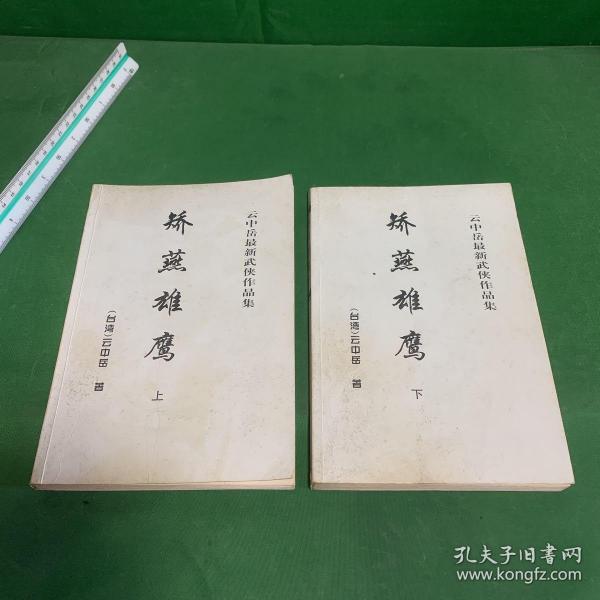 云中岳最新武侠作品集
矫燕雄鹰
上
(台湾)云中岳 著
云中岳最新武侠作品集
矫燕雄鹰
下
(台湾)云中岳 著
孔夫子旧书网
www.kongfz.com